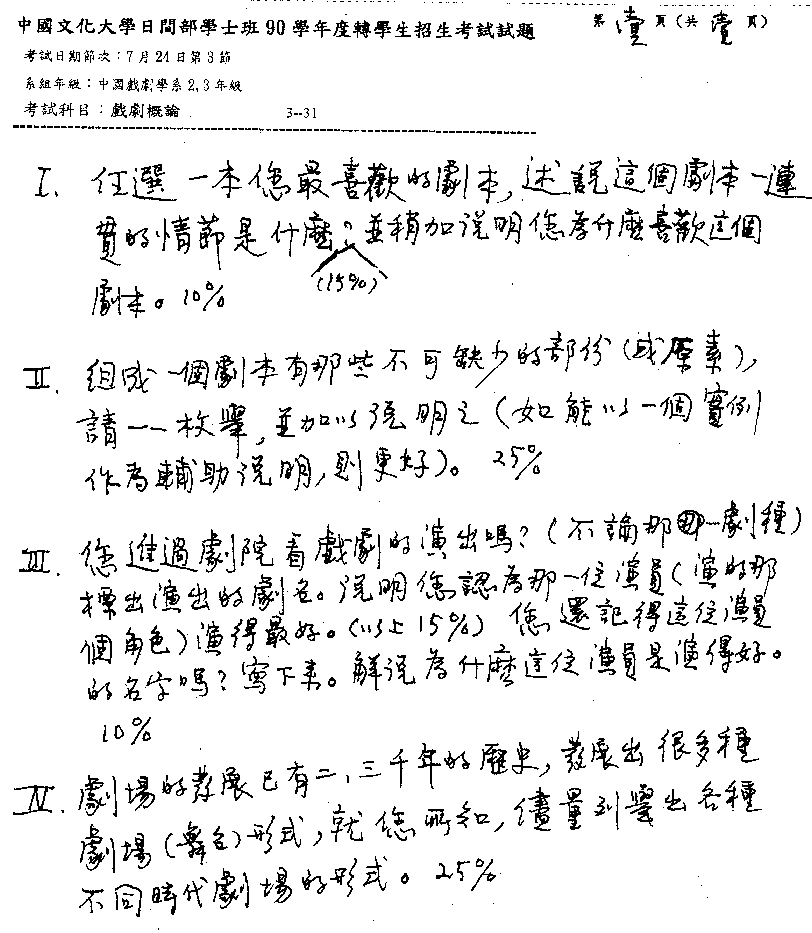 中國文化大學日間部學士班90學年度轉學生招生考試試題 第壹頁(共壹頁)
考試日期節次:7月24日第3節
系組年級:中國戲劇學系2,3年級
考試科目:戲劇概論 3--31
I. 任選一本您最喜歡的劇本,述說這個劇本一連
貫的情節是什麼?並稍加说明您為什麼喜歡這個
(15%)
劇本。10%
II. 組成一個劇本有那些不可缺少的部份(或原素),
請一一枚舉,並加以說明之(如能以一個實例
作為輔助说明,則更好)。25%
III. 您進過劇院看戲劇的演出嗎?(不論那一劇種)
標出演出的劇名。说明您認為那一位演員(演的那
個角色)演得最好。(以上15%) 您還記得這位演員
的名字嗎?寫下來。解说為什麼這位演員是演得好。
10%
IV. 劇場的發展已有二、三千年的歷史,發展出很多種
劇場(舞台)形式,就您所知,儘量列舉出各種
不同時代劇場的形式。25%